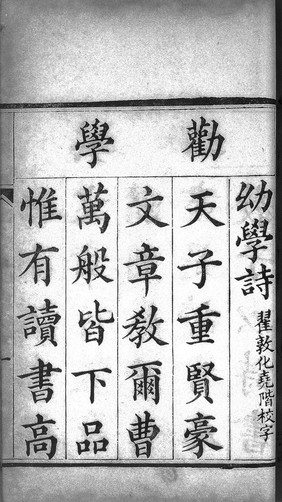 勸學
幼學詩 翟敦化堯階校字
天子重賢豪
文章教爾曹
萬般皆下品
惟有讀書高